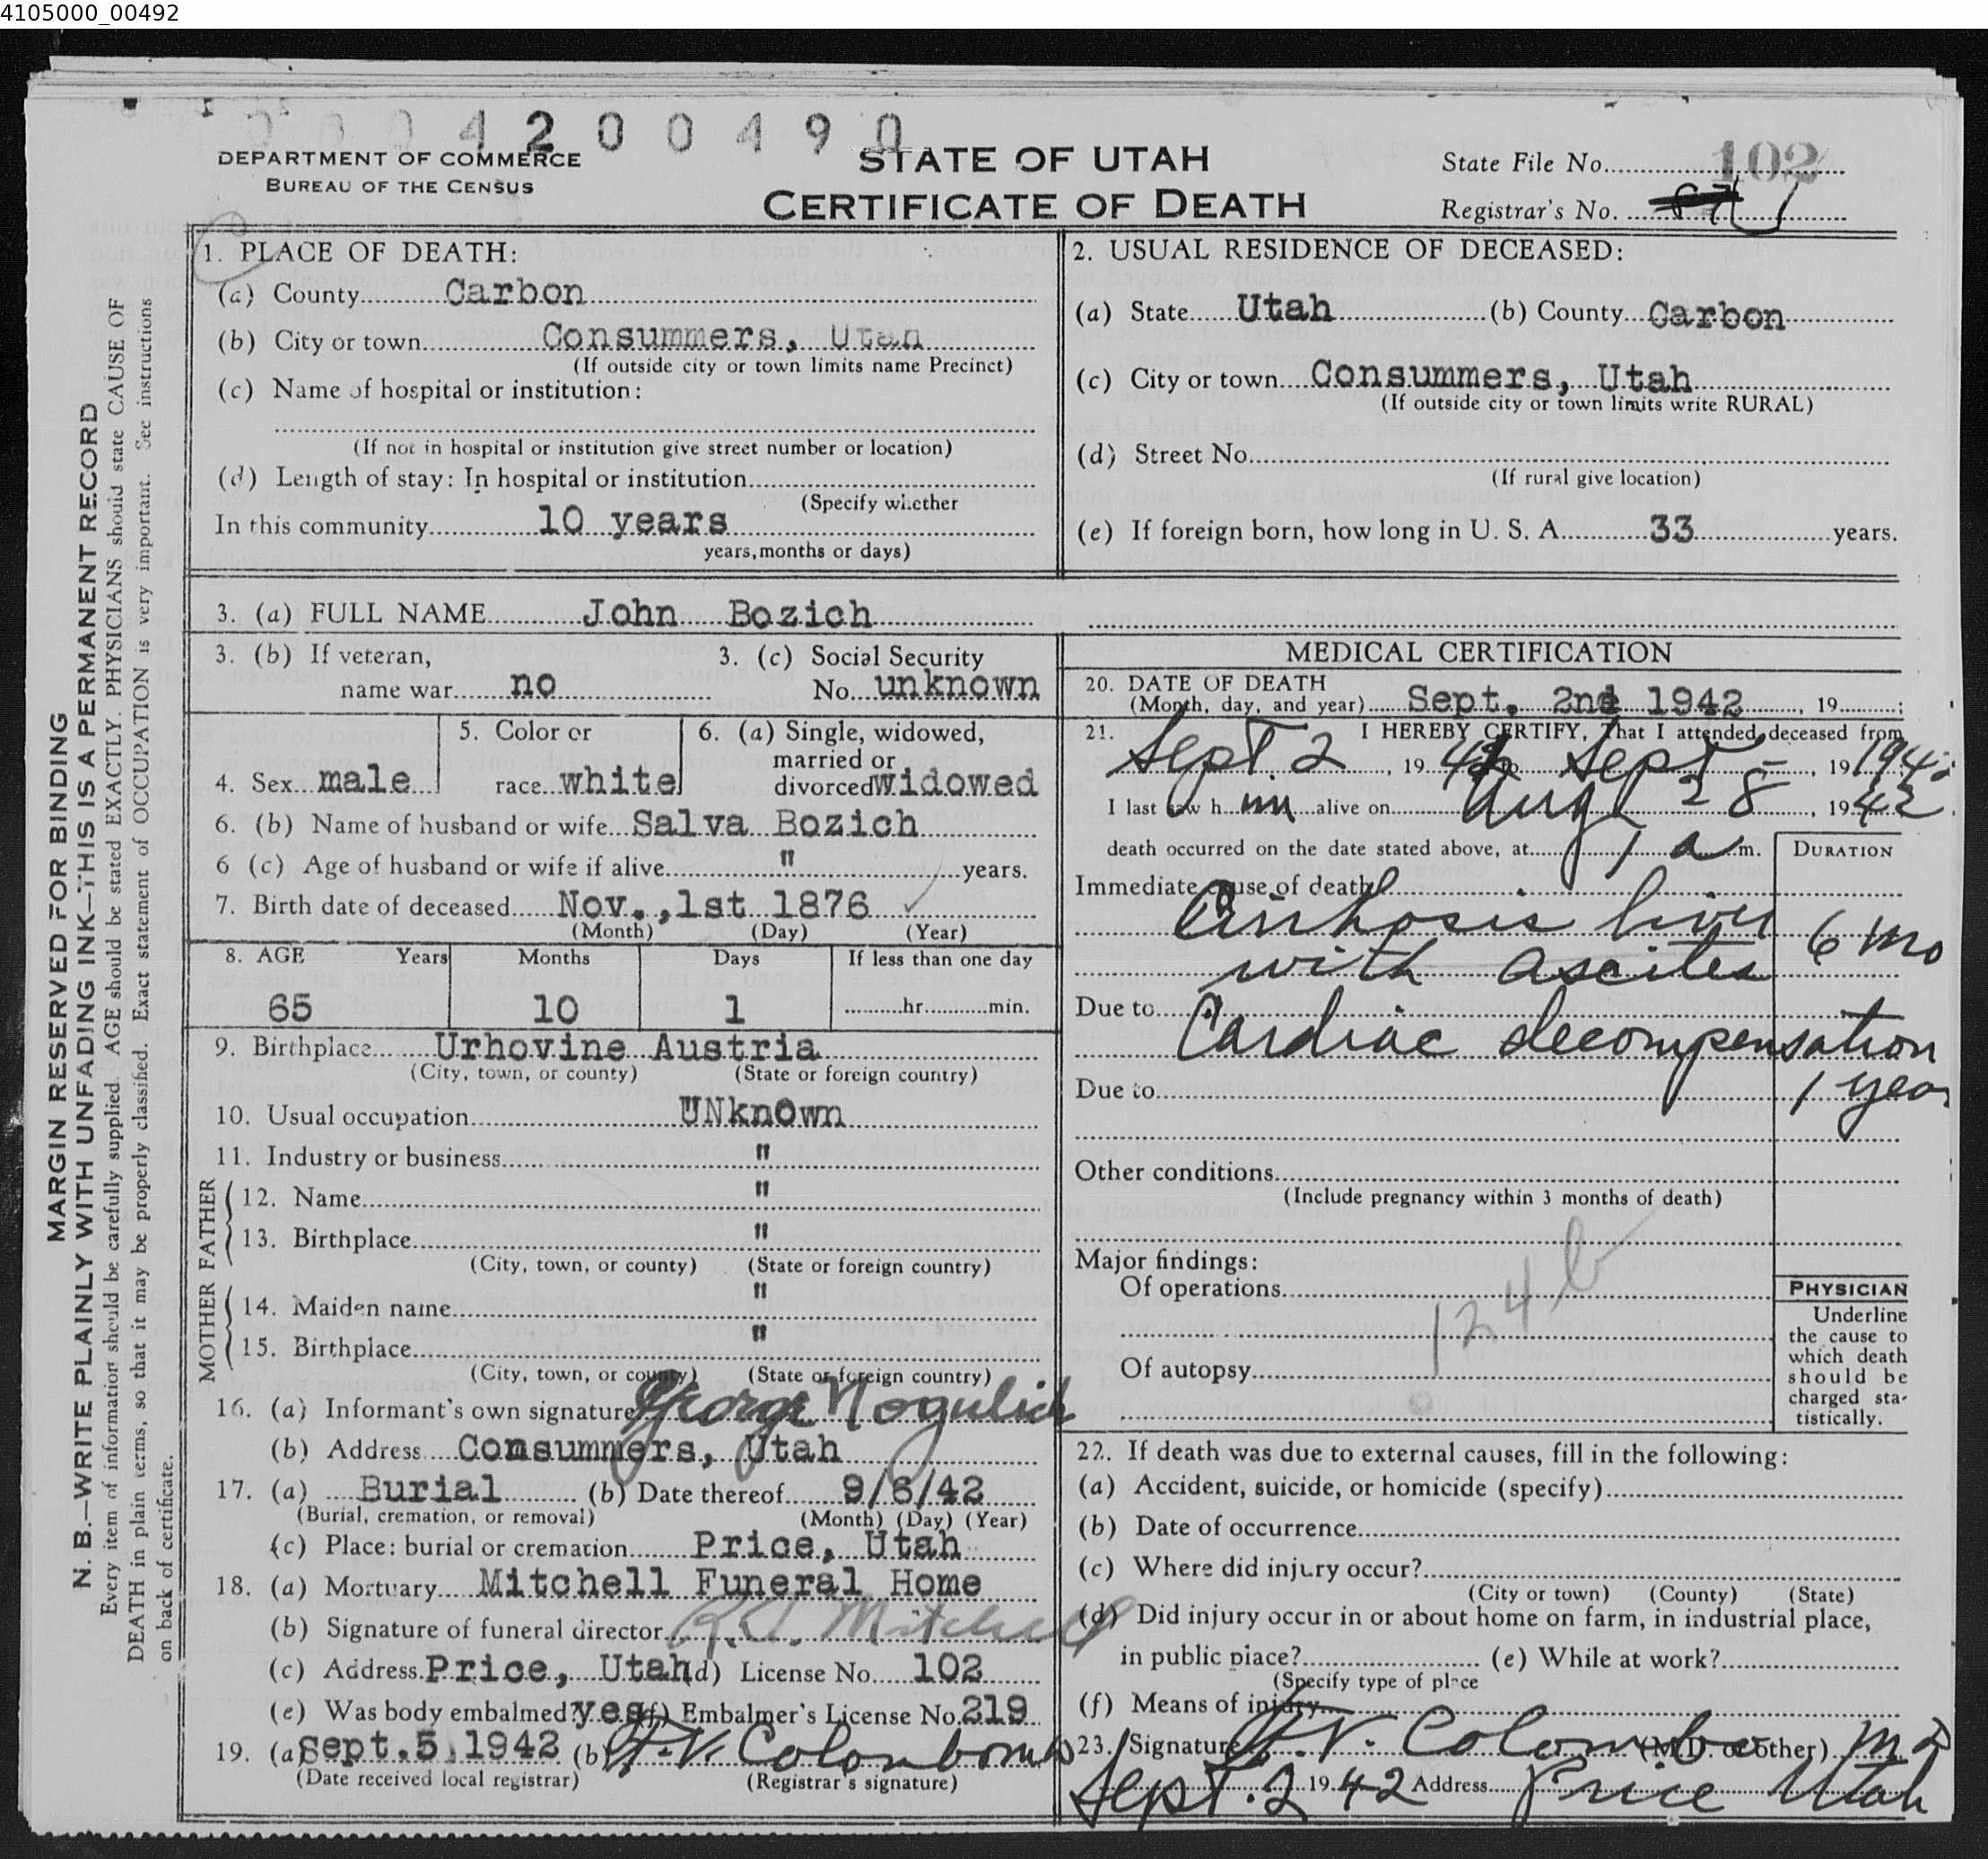 4105000_00492
4 2 0 0 4 9 0
DEPARTMENT OF COMMERCE
BUREAU OF THE CENSUS
STATE OF UTAH
CERTIFICATE OF DEATH
State File No. 102
Registrar's No.
MARGIN RESERVED FOR BINDING
N. B.—WRITE PLAINLY WITH UNFADING INK—THIS IS A PERMANENT RECORD
Every item of information should be carefully supplied. AGE should be stated EXACTLY. PHYSICIANS should state CAUSE OF
DEATH in plain terms, so that it may be properly classified. Exact statement of OCCUPATION is very important. See instructions
on back of certificate.
1. PLACE OF DEATH:
(a) County Carbon
(b) City or town Consummers, Utah
(If outside city or town limits name Precinct)
(c) Name of hospital or institution:
(If not in hospital or institution give street number or location)
(d) Length of stay: In hospital or institution
(Specify whether
In this community 10 years
years, months or days)
2. USUAL RESIDENCE OF DECEASED:
(a) State Utah (b) County Carbon
(c) City or town Consummers, Utah
(If outside city or town limits write RURAL)
(d) Street No.
(If rural give location)
(e) If foreign born, how long in U. S. A. 33 years.
3. (a) FULL NAME John Bozich
3. (b) If veteran,
name war no
3. (c) Social Security
No. unknown
4. Sex male
5. Color or
race white
6. (a) Single, widowed,
married or
divorced widowed
6. (b) Name of husband or wife Salva Bozich
6 (c) Age of husband or wife if alive " years.
7. Birth date of deceased Nov., 1st 1876
(Month) (Day) (Year)
8. AGE Years Months Days If less than one day
65 10 1 hr. min.
9. Birthplace Urhovine Austria
(City, town, or county) (State or foreign country)
10. Usual occupation UNknown
11. Industry or business "
FATHER
12. Name "
13. Birthplace "
(City, town, or county) (State or foreign country)
MOTHER
14. Maiden name "
15. Birthplace "
(City, town, or county) (State or foreign country)
16. (a) Informant's own signature George Nogulich
(b) Address Consummers, Utah
17. (a) Burial (b) Date thereof 9/6/42
(Burial, cremation, or removal) (Month) (Day) (Year)
(c) Place: burial or cremation Price, Utah
18. (a) Mortuary Mitchell Funeral Home
(b) Signature of funeral director Mitchell
(c) Address Price, Utah (d) License No. 102
(e) Was body embalmed? yes (f) Embalmer's License No. 219
19. (a) Sept. 5, 1942 (b)
(Date received local registrar) (Registrar's signature)
MEDICAL CERTIFICATION
20. DATE OF DEATH
(Month, day, and year) Sept. 2nd 1942, 19 ;
21. I HEREBY CERTIFY, That I attended deceased from
Sept. 2, 19 42 to Sept 5, 19 1942
I last saw h im alive on Aug 28, 19 42
death occurred on the date stated above, at 1 a m.
DURATION
Immediate cause of death
Cirrhosis liver
with ascites 6 mo
Due to
Cardiac decompensation
Due to 1 year
Other conditions
(Include pregnancy within 3 months of death)
Major findings:
Of operations
124b
Of autopsy
PHYSICIAN
Underline
the cause to
which death
should be
charged sta-
tistically.
22. If death was due to external causes, fill in the following:
(a) Accident, suicide, or homicide (specify)
(b) Date of occurrence
(c) Where did injury occur?
(City or town) (County) (State)
(d) Did injury occur in or about home on farm, in industrial place,
in public place? (e) While at work?
(Specify type of place
(f) Means of injury
23. Signature F. V. Colombo (M.D. or other) M D
Sept. 2 19 42 Address Price Utah